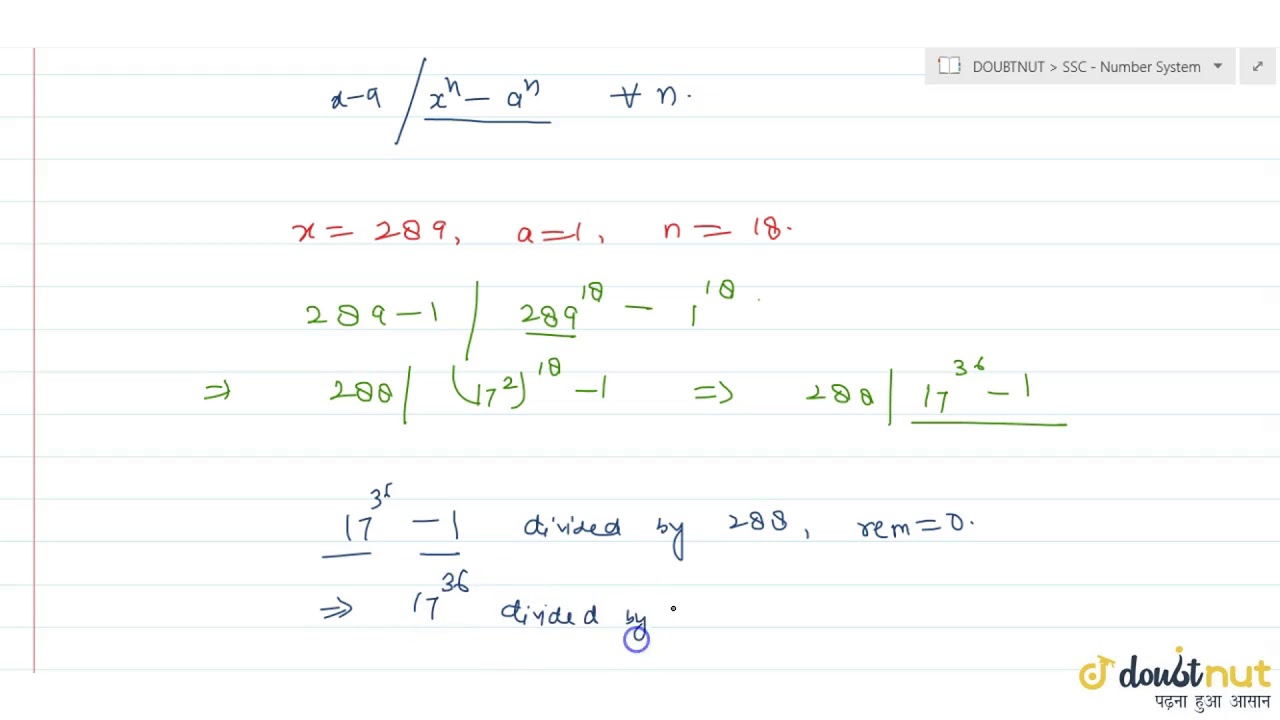 DOUBTNUT > SSC - Number System
x-a / xⁿ - aⁿ ∀ n.
x = 289, a=1, n = 18.
289-1 | 289¹⁸ - 1¹⁸
⇒ 288 | (17²)¹⁸ -1 ⇒ 288 | 17³⁶ - 1
17³⁶ - 1 divided by 288, rem=0.
⇒ 17³⁶ divided by
doubtnut
पढ़ना हुआ आसान